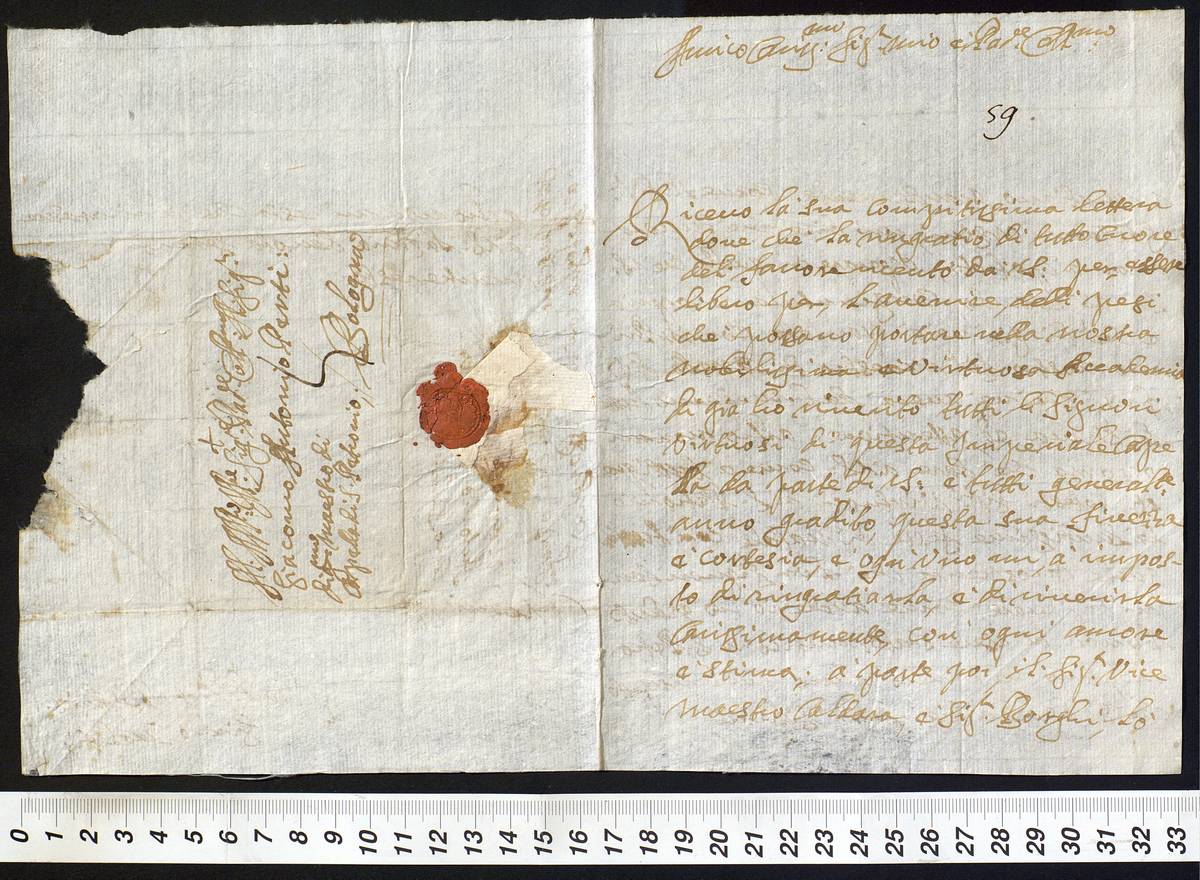 Amico Cariss:mo Sig:r mio e Pad:e Col:mo
59
Riceuo la sua compitissima lettera
doue che la ringratio di tutto cuore
del fauore riceuto da V.S: per essere
libero per l'auenire delli pesi
che possano portare nella nostra
nobilissima e Virtuosa Accademia
di già hò riuerito tutti li Signori
virtuosi di questa Imperiale Cape
lla da parte di V.S: e tutti general:te
anno gradito questa sua finezza
e cortesia, e ogni uno mi à impos-
to di ringratiarla, e di riuerirla
carissimamente, con ogni amore
e stima; a parte poi il Sig:r Vice
maestro Caldara, e Sig:r Borghi, lò
Sig:r Pad:e Col:mo il Sig:r
Giacomo Antonio Perti:
Dig:mo Maestro di
Capela di S: Petronio; Bologna
0 1 2 3 4 5 6 7 8 9 10 11 12 13 14 15 16 17 18 19 20 21 22 23 24 25 26 27 28 29 30 31 32 33